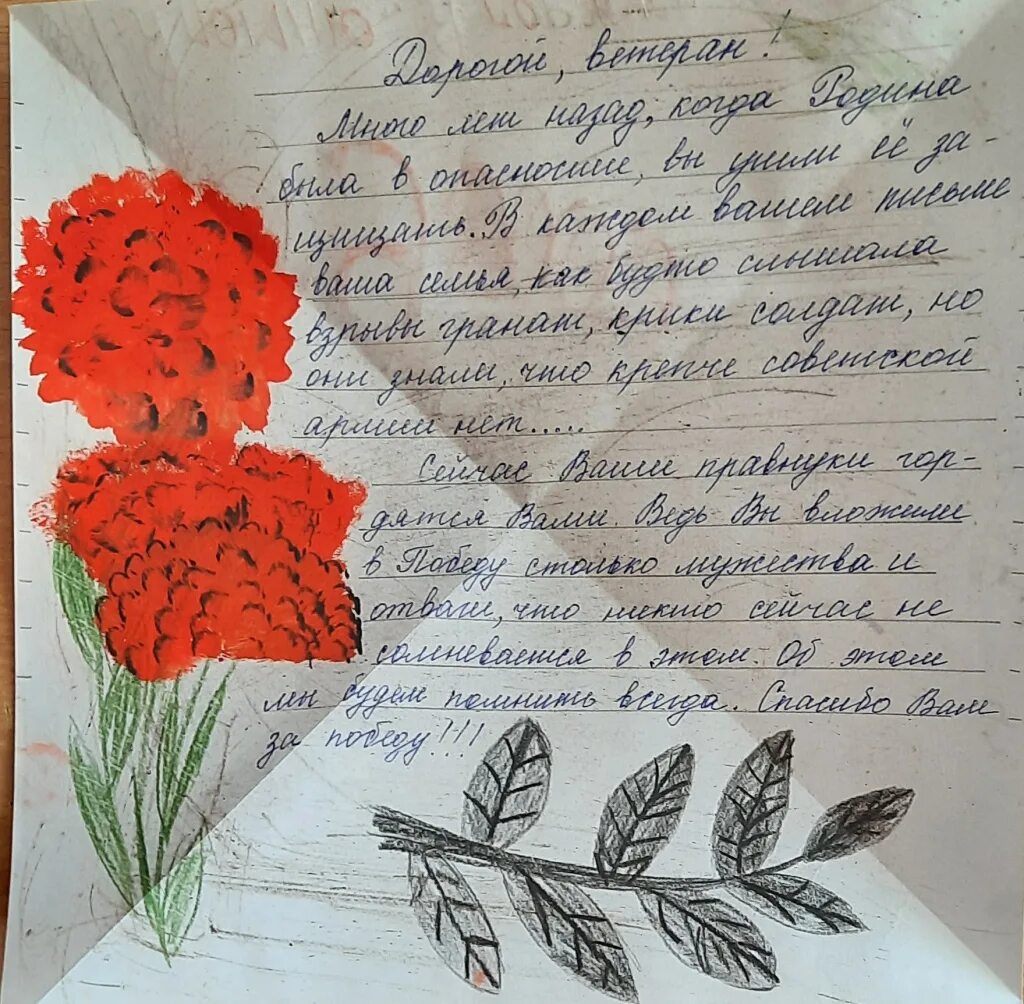 Дорогой, ветеран!
Много лет назад, когда Родина
была в опасности, вы ушли её за-
щищать. В каждом вашем письме
ваша семья, как будто слышала
взрывы гранат, крики солдат, но
они знали, что крепче советской
армии нет.....
Сейчас Ваши правнуки гор-
дятся Вами. Ведь Вы вложили
в Победу столько мужества и
отваги, что никто сейчас не
сомневается в этом. Об этом
мы будем помнить всегда. Спасибо Вам
за победу!!!